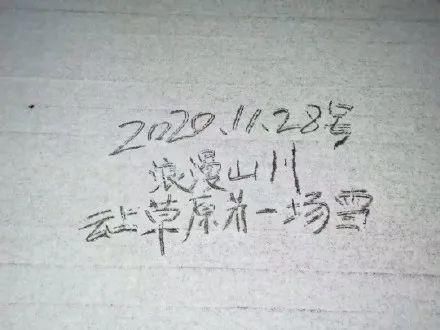 2020.11.28号
浪漫山川
云上草原第一场雪